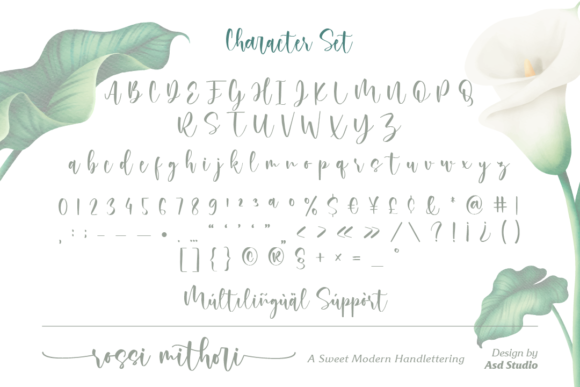 Character Set
A B C D E F G H I J K L M N O P Q
R S T U V W X Y Z
a b c d e f g h i j k l m n o p q r s t u v w x y z
0 1 2 3 4 5 6 7 8 9 ¹ ² ³ ª º % $ € ¥ £ ¢ & * @ # |
, : ; - – — • . … “ ‘ ’ ” „ < > « » / \ ? ! ¡ ¿ ( )
[ ] { } © ® § + × = _ °
Múltilingüäl Süppört
rossi mithori
A Sweet Modern Handlettering
Design by
Asd Studio